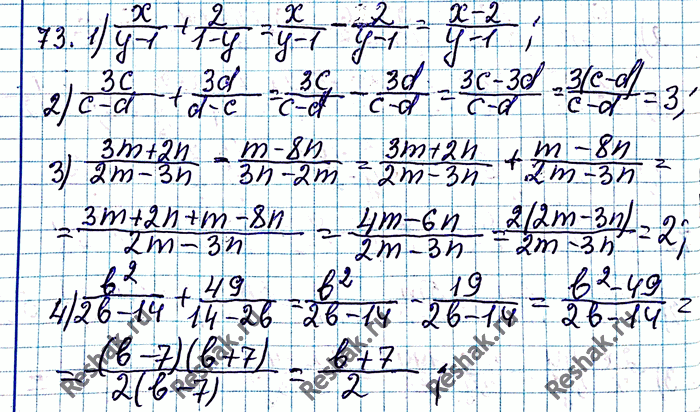 73. 1) x/(y-1) + 2/(1-y) = x/(y-1) - 2/(y-1) = (x-2)/(y-1);
2) 3c/(c-d) + 3d/(d-c) = 3c/(c-d) - 3d/(c-d) = (3c-3d)/(c-d) = 3(c-d)/(c-d) = 3;
3) (3m+2n)/(2m-3n) - (m-8n)/(3n-2m) = (3m+2n)/(2m-3n) + (m-8n)/(2m-3n) =
= (3m+2n+m-8n)/(2m-3n) = (4m-6n)/(2m-3n) = 2(2m-3n)/(2m-3n) = 2;
4) b²/(2b-14) + 49/(14-2b) = b²/(2b-14) - 19/(2b-14) = (b²-49)/(2b-14) =
= (b-7)(b+7)/2(b-7) = (b+7)/2;
Reshak.ru Reshak.ru Reshak.ru Reshak.ru Reshak.ru